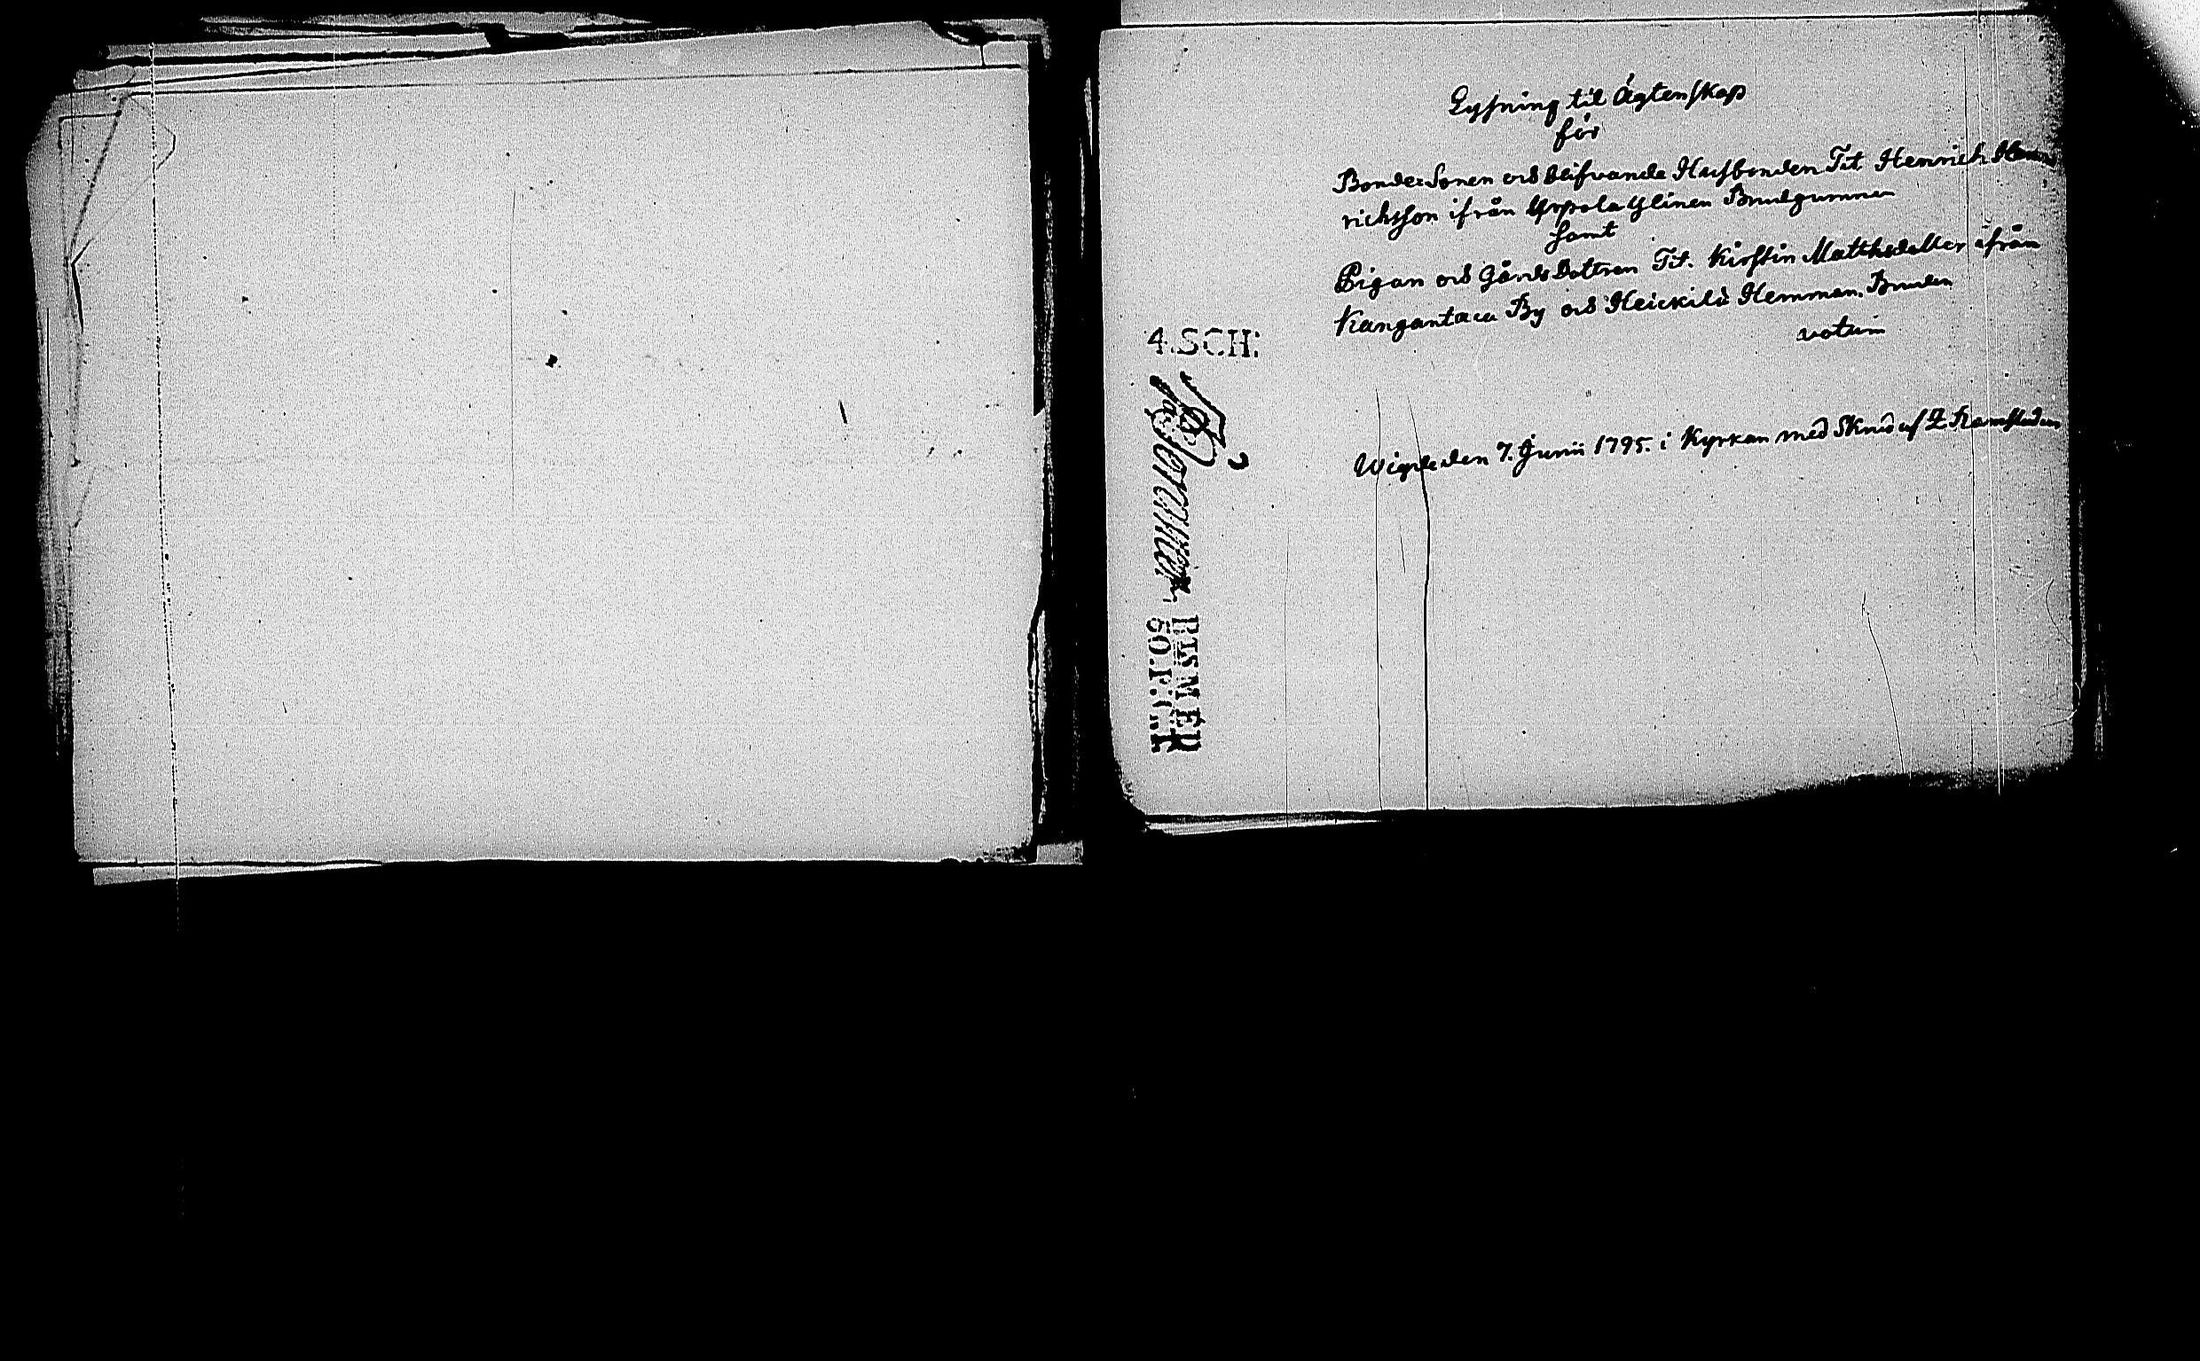 Lysning til Ägtenskap
för
Bonde Sonen och blifvande Husbonden Tit Henrich Hen
richsson ifrån Yrpola Ylinen Brudgummen
samt
Pigan och Gårds Dottren Tit. Kirstin Matthsdotter ifrån
Kangantaca By och Heickilä Hemman. Bruden
votum
4.SCH:
SMER
Wigde den 7. Junii 1795. i Kyrkan med Skrud af